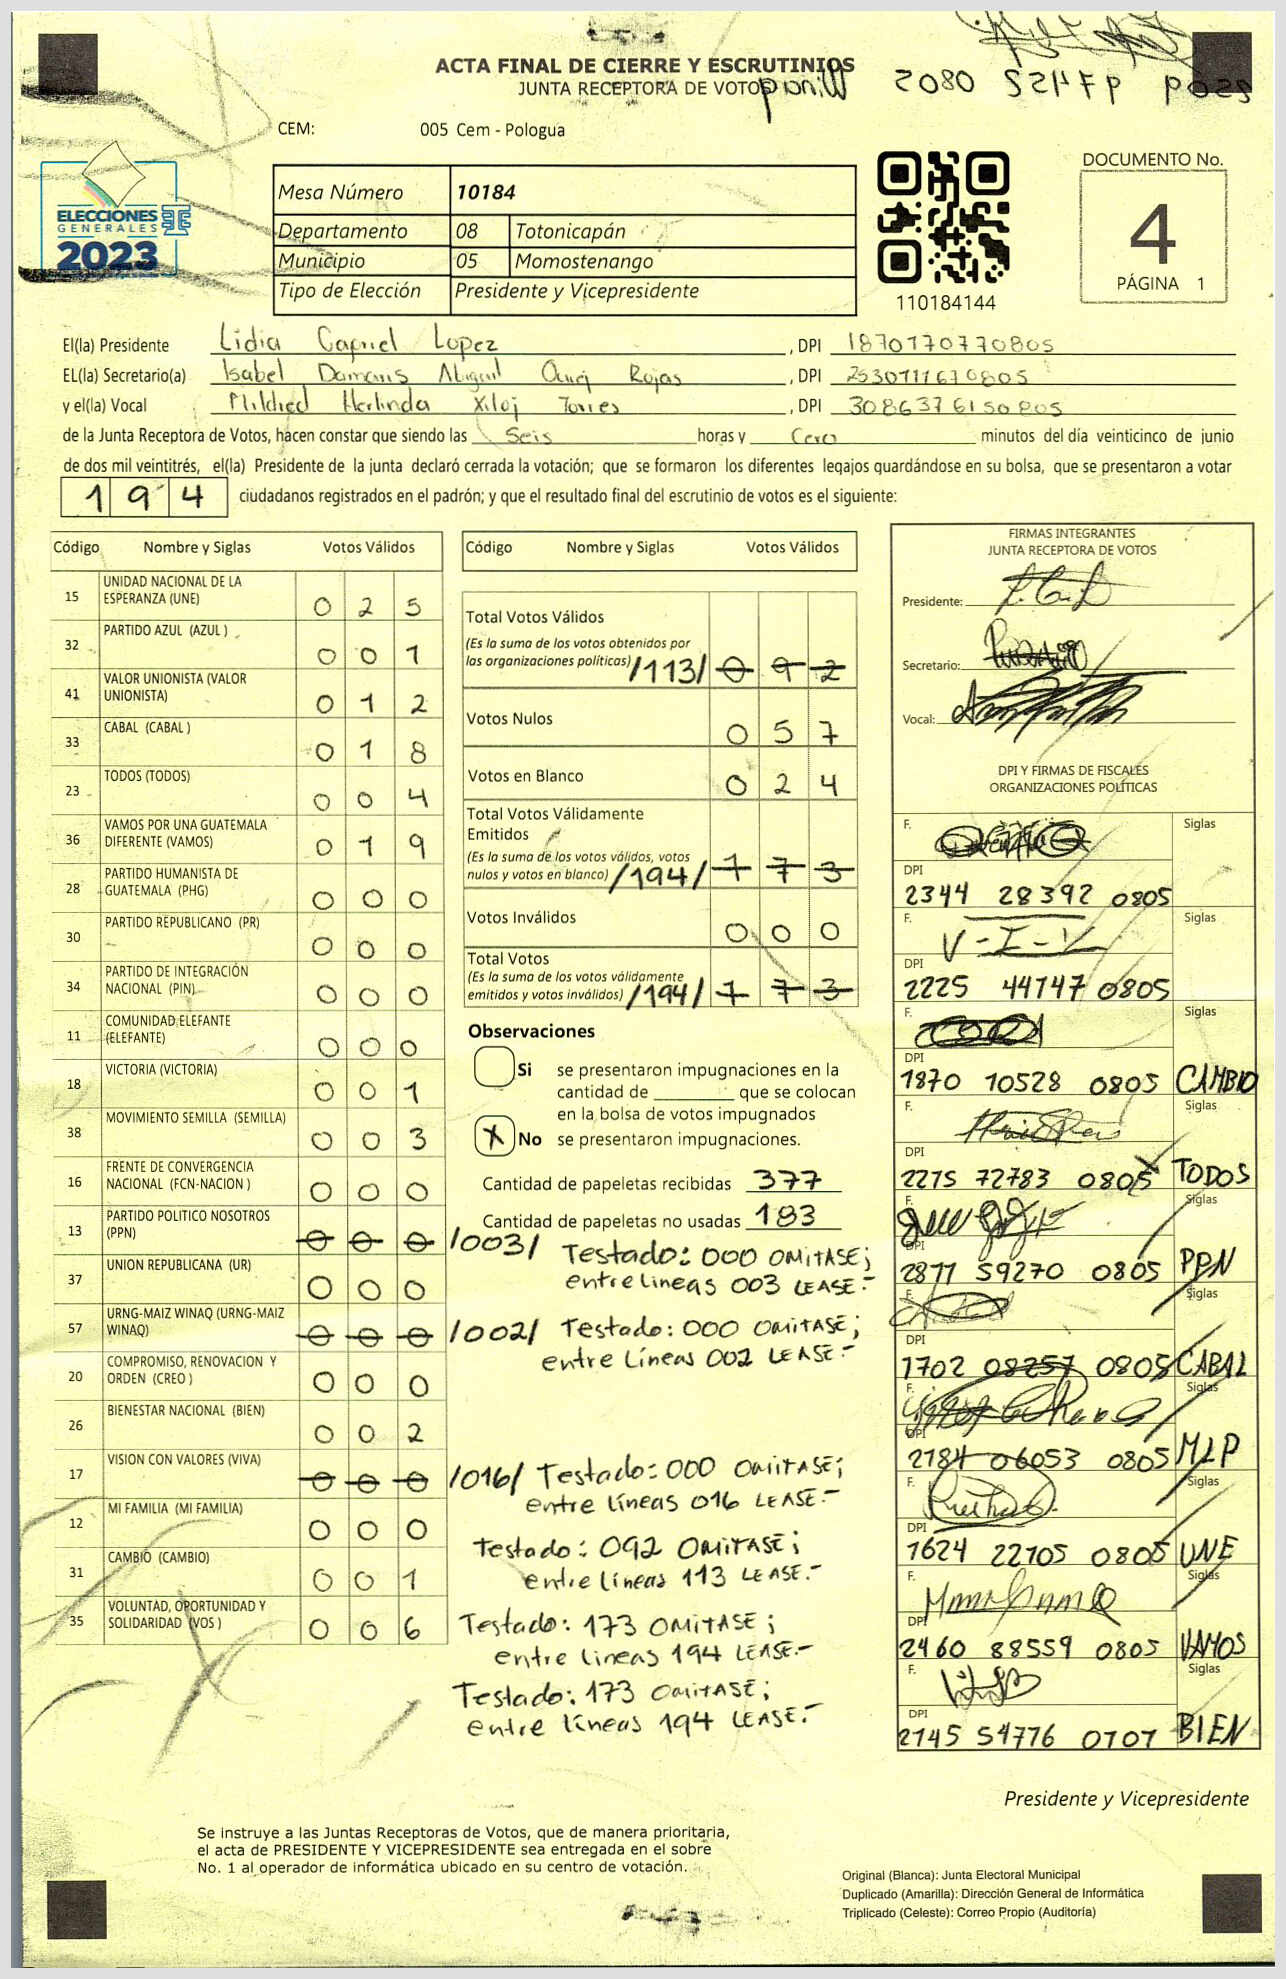 ACTA FINAL DE CIERRE Y ESCRUTINIOS
JUNTA RECEPTORA DE VOTOS
CEM: 005 Cem - Pologua
ELECCIONES
GENERALES
2023
Mesa Número 10184
Departamento 08 Totonicapán
Municipio 05 Momostenango
Tipo de Elección Presidente y Vicepresidente
110184144
DOCUMENTO No.
4
PÁGINA 1
El(la) Presidente Lidia Gabriel Lopez, DPI 1870170770805
EL(la) Secretario(a) Isabel Damaris Abigail Rojas, DPI 2530711670805
y el(la) Vocal Mildred Herlinda Xiloj Torres, DPI 3086376150805
de la Junta Receptora de Votos, hacen constar que siendo las Seis horas y Cero minutos del día veinticinco de junio
de dos mil veintitrés, el(la) Presidente de la junta declaró cerrada la votación; que se formaron los diferentes legajos guardándose en su bolsa, que se presentaron a votar
194 ciudadanos registrados en el padrón; y que el resultado final del escrutinio de votos es el siguiente:
Código Nombre y Siglas Votos Válidos
15 UNIDAD NACIONAL DE LA ESPERANZA (UNE) 025
32 PARTIDO AZUL (AZUL ) 001
41 VALOR UNIONISTA (VALOR UNIONISTA) 012
33 CABAL (CABAL ) 018
23 TODOS (TODOS) 004
36 VAMOS POR UNA GUATEMALA DIFERENTE (VAMOS) 019
28 PARTIDO HUMANISTA DE GUATEMALA (PHG) 000
30 PARTIDO REPUBLICANO (PR) 000
34 PARTIDO DE INTEGRACIÓN NACIONAL (PIN) 000
11 COMUNIDAD ELEFANTE (ELEFANTE) 000
18 VICTORIA (VICTORIA) 001
38 MOVIMIENTO SEMILLA (SEMILLA) 003
16 FRENTE DE CONVERGENCIA NACIONAL (FCN-NACION ) 000
13 PARTIDO POLITICO NOSOTROS (PPN) 000 /003/
37 UNION REPUBLICANA (UR) 000
57 URNG-MAIZ WINAQ (URNG-MAIZ WINAQ) 000 /002/
20 COMPROMISO, RENOVACION Y ORDEN (CREO ) 000
26 BIENESTAR NACIONAL (BIEN) 002
17 VISION CON VALORES (VIVA) 000 /016/
12 MI FAMILIA (MI FAMILIA) 000
31 CAMBIO (CAMBIO) 001
35 VOLUNTAD, OPORTUNIDAD Y SOLIDARIDAD (VOS ) 006
Código Nombre y Siglas Votos Válidos
Total Votos Válidos
(Es la suma de los votos obtenidos por
las organizaciones políticas) /113/ 092
Votos Nulos 057
Votos en Blanco 024
Total Votos Válidamente
Emitidos
(Es la suma de los votos válidos, votos
nulos y votos en blanco) /194/ 173
Votos Inválidos 000
Total Votos
(Es la suma de los votos válidamente
emitidos y votos inválidos) /194/ 173
Observaciones
Si se presentaron impugnaciones en la
cantidad de ________ que se colocan
en la bolsa de votos impugnados
X No se presentaron impugnaciones.
Cantidad de papeletas recibidas 377
Cantidad de papeletas no usadas 183
Testado: 000 OMITASE;
entre lineas 003 LEASE.-
Testado: 000 OMITASE;
entre líneas 002 LEASE.-
Testado: 000 OMITASE;
entre líneas 016 LEASE.-
Testado: 092 OMITASE;
entre líneas 113 LEASE.-
Testado: 173 OMITASE;
entre lineas 194 LEASE.-
Testado: 173 OMITASE;
entre líneas 194 LEASE.-
FIRMAS INTEGRANTES
JUNTA RECEPTORA DE VOTOS
Presidente:
Secretario:
Vocal:
DPI Y FIRMAS DE FISCALES
ORGANIZACIONES POLÍTICAS
F. Siglas
DPI
2344 28392 0805
F. Siglas
V-I-L
DPI
2225 44147 0805
F. Siglas
DPI
1870 10528 0805 CAMBIO
F. Siglas
DPI
2275 72783 0805 TODOS
F. Siglas
DPI
2871 59270 0805 PPN
F. Siglas
DPI
1702 08257 0805 CABAL
F. Siglas
DPI
2184 06053 0805 MLP
F. Siglas
DPI
1624 22105 0805 UNE
F. Siglas
DPI
2460 88559 0805 VAMOS
F. Siglas
DPI
2145 54776 0707 BIEN
Presidente y Vicepresidente
Se instruye a las Juntas Receptoras de Votos, que de manera prioritaria,
el acta de PRESIDENTE Y VICEPRESIDENTE sea entregada en el sobre
No. 1 al operador de informática ubicado en su centro de votación.
Original (Blanca): Junta Electoral Municipal
Duplicado (Amarilla): Dirección General de Informática
Triplicado (Celeste): Correo Propio (Auditoría)